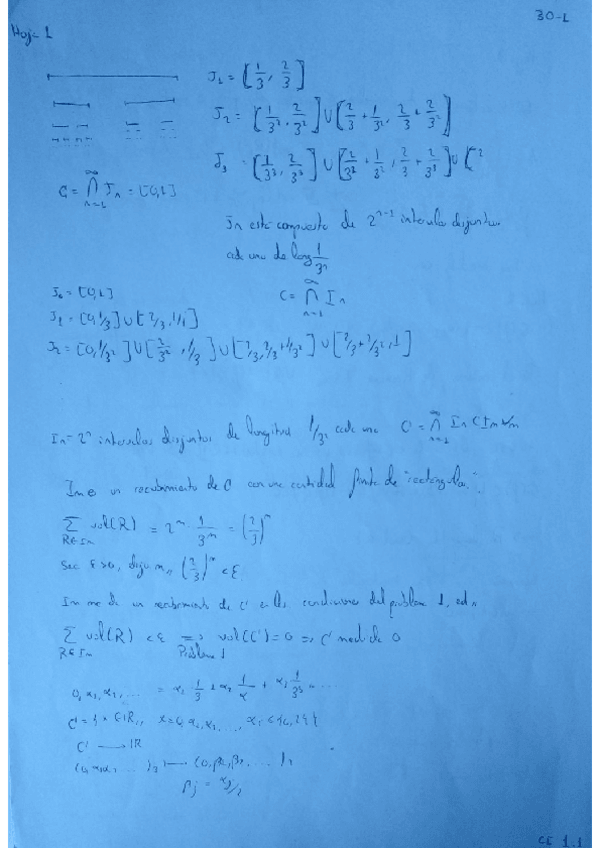 30-1
Hoja 1
J₁ = [1/3, 2/3]
J₂ = [1/3², 2/3²] ∪ [2/3 + 1/3², 2/3 + 2/3²]
J₃ = [1/3³, 2/3³] ∪ [2/3² + 1/3³, 2/3² + 2/3³] ∪ [
C = ⋂ₙ₌₁^∞ Jₙ = [0,1]
Jₙ está compuesto de 2ⁿ⁻¹ intervalos disjuntos
cada uno de long 1/3ⁿ
J₀ = [0,1]
C = ⋂ₙ₌₁^∞ Iₙ
J₁ = [0, 1/3] ∪ [2/3, 1/1]
J₂ = [0, 1/3²] ∪ [2/3², 1/3] ∪ [2/3, 2/3 + 1/3²] ∪ [2/3 + 2/3², 1]
Iₙ = 2ⁿ intervalos disjuntos de longitud 1/3ⁿ cada uno C = ⋂ₙ₌₁^∞ Iₙ ⊂ Iₘ ∀m
Iₘ es un recubrimiento de C con una cantidad finita de "rectángulos".
∑ R∈Iₘ vol(R) = 2ᵐ · 1/3ᵐ = (2/3)ᵐ
Sea ε > 0, elijo m, (2/3)ᵐ < ε
Iₘ me da un recubrimiento de C en las condiciones del problema 1,
∑ R∈Iₘ vol(R) < ε ⟹ Problema 1 vol(C) = 0 ⟹ C medida 0
0, α₁, α₂, ... = α₁ 1/3 + α₂ 1/3² + α₃ 1/3³ ...
C = { x ∈ ℝ, x = 0, α₁, α₂, ..., αᵢ ∈ {0,2} }
C ⟶ ℝ
(0, α₁α₂ ... )₃ ⟼ (0, β₁, β₂, ... )₂
βⱼ = αⱼ/2
CE 1.1